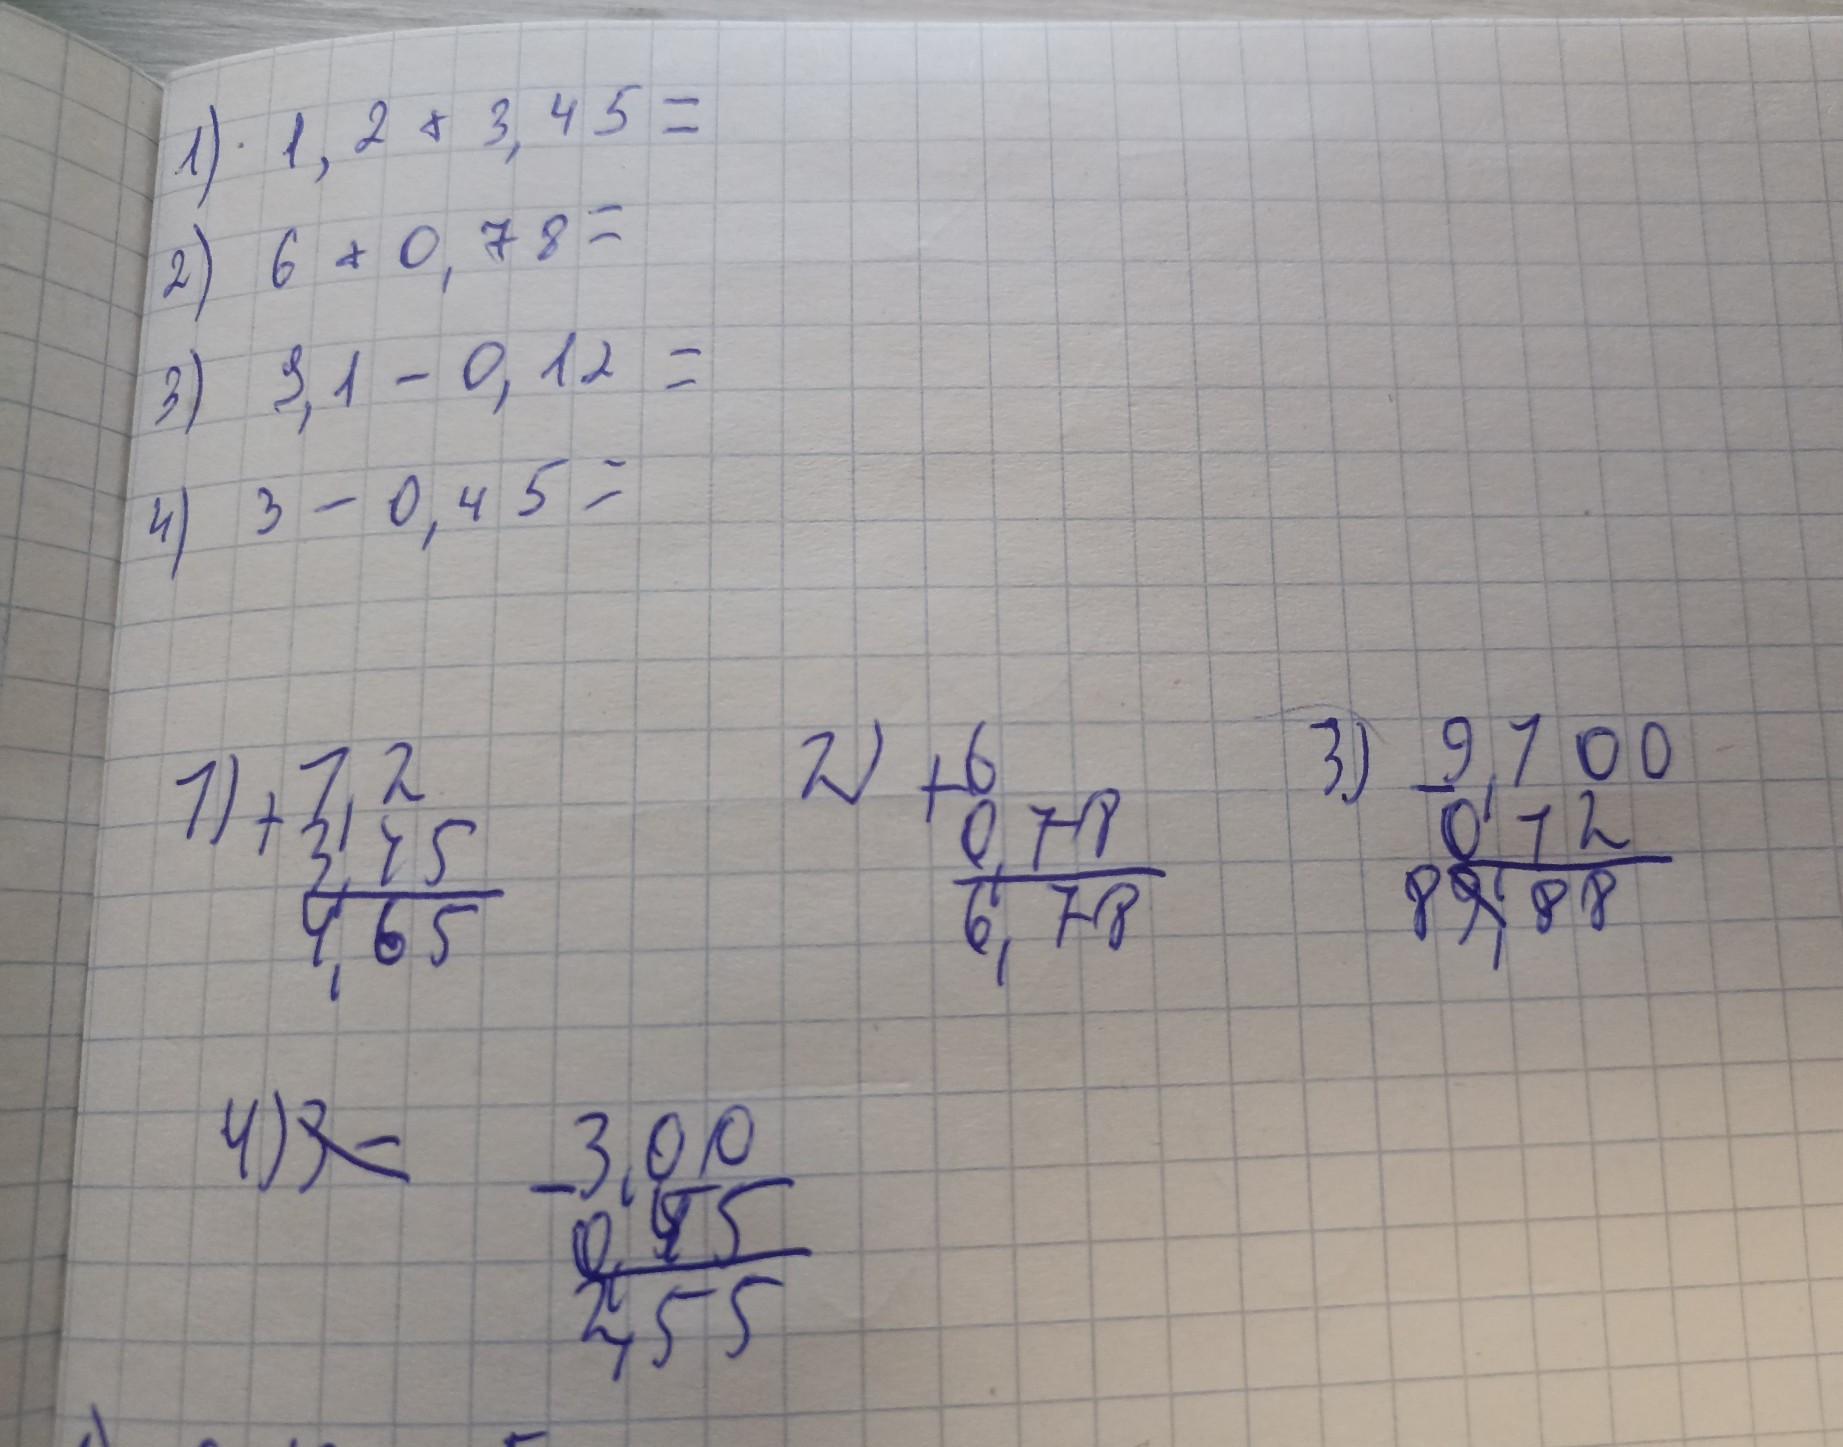 1) 1,2 + 3,45 =
2) 6 + 0,78 =
3) 9,1 - 0,12 =
4) 3 - 0,45 =
1) + 1,2
3,45
4,65
2) + 6
0,78
6,78
3) - 9,100
0,12
8,88
4)
- 3,00
0,45
2,55